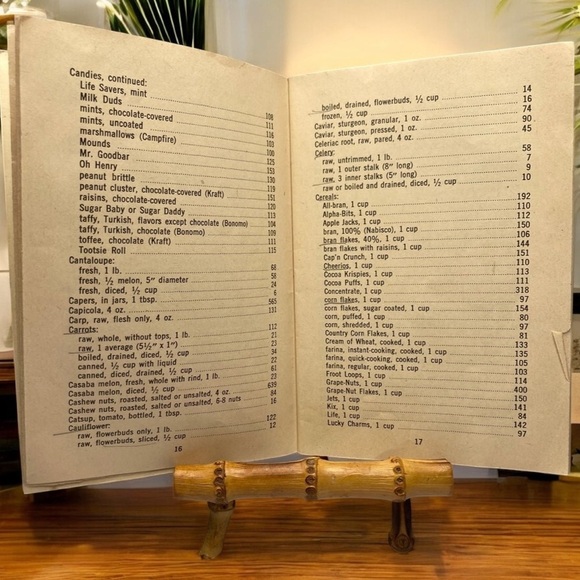 Candies, continued:
Life Savers, mint
Milk Duds 108
mints, chocolate-covered 111
mints, uncoated 103
marshmallows (Campfire) 100
Mounds 125
Mr. Goodbar 153
Oh Henry 130
peanut brittle 119
peanut cluster, chocolate-covered (Kraft) 151
raisins, chocolate-covered 120
Sugar Baby or Sugar Daddy 113
taffy, Turkish, flavors except chocolate (Bonomo) 104
taffy, Turkish, chocolate (Bonomo) 109
toffee, chocolate (Kraft) 111
Tootsie Roll 115
Cantaloupe:
fresh, 1 lb. 68
fresh, ½ melon, 5" diameter 58
fresh, diced, ½ cup 24
Capers, in jars, 1 tbsp. 6
Capicola, 4 oz. 565
Carp, raw, flesh only, 4 oz. 131
Carrots:
raw, whole, without tops, 1 lb. 112
raw, 1 average (5½" x 1") 21
boiled, drained, diced, ½ cup 23
canned, ½ cup with liquid 34
canned, diced, drained, ½ cup 22
Casaba melon, fresh, whole with rind, 1 lb. 61
Casaba melon, diced, ½ cup 23
Cashew nuts, roasted, salted or unsalted, 4 oz. 639
Cashew nuts, roasted, salted or unsalted, 6-8 nuts 84
Catsup, tomato, bottled, 1 tbsp. 16
Cauliflower:
raw, flowerbuds only, 1 lb. 122
raw, flowerbuds, sliced, ½ cup 12
16
boiled, drained, flowerbuds, ½ cup 14
frozen, ½ cup 16
Caviar, sturgeon, granular, 1 oz. 74
Caviar, sturgeon, pressed, 1 oz. 90
Celeriac root, raw, pared, 4 oz. 45
Celery:
raw, untrimmed, 1 lb. 58
raw, 1 outer stalk (8" long) 7
raw, 3 inner stalks (5" long) 9
raw or boiled and drained, diced, ½ cup 10
Cereals:
All-bran, 1 cup 192
Alpha-Bits, 1 cup 110
Apple Jacks, 1 cup 112
bran, 100% (Nabisco), 1 cup 150
bran flakes, 40%, 1 cup 106
bran flakes with raisins, 1 cup 144
Cap'n Crunch, 1 cup 151
Cheerios, 1 cup 110
Cocoa Krispies, 1 cup 113
Cocoa Puffs, 1 cup 111
Concentrate, 1 cup 318
corn flakes, 1 cup 97
corn flakes, sugar coated, 1 cup 154
corn, puffed, 1 cup 80
corn, shredded, 1 cup 97
Country Corn Flakes, 1 cup 81
Cream of Wheat, cooked, 1 cup 133
farina, instant-cooking, cooked, 1 cup 135
farina, quick-cooking, cooked, 1 cup 105
farina, regular, cooked, 1 cup 103
Froot Loops, 1 cup 114
Grape-Nuts, 1 cup 400
Grape-Nut Flakes, 1 cup 150
Jets, 1 cup 141
Kix, 1 cup 84
Life, 1 cup 142
Lucky Charms, 1 cup 97
17